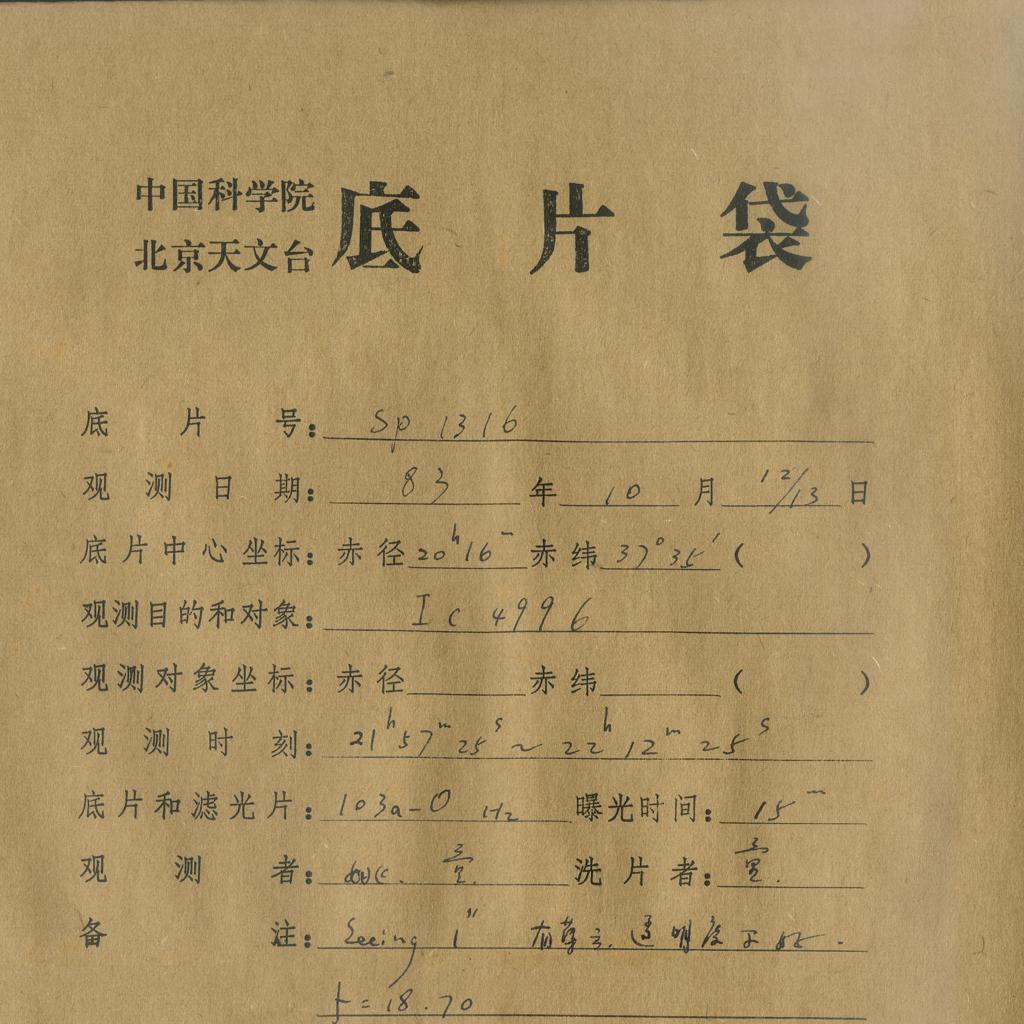 中国科学院
北京天文台
底片袋
底片号: Sp 1316
观测日期: 83 年 10 月 12/13 日
底片中心坐标: 赤径 20h16m 赤纬 37°35′ ( )
观测目的和对象: Ic 4996
观测对象坐标: 赤径 赤纬 ( )
观测时刻: 21h57m25s ~ 22h12m25s
底片和滤光片: 103a-O H2 曝光时间: 15m
观测者: 洗片者:
备注: Seeing 1″ 有薄云. 透明度不好.
f = 18.70